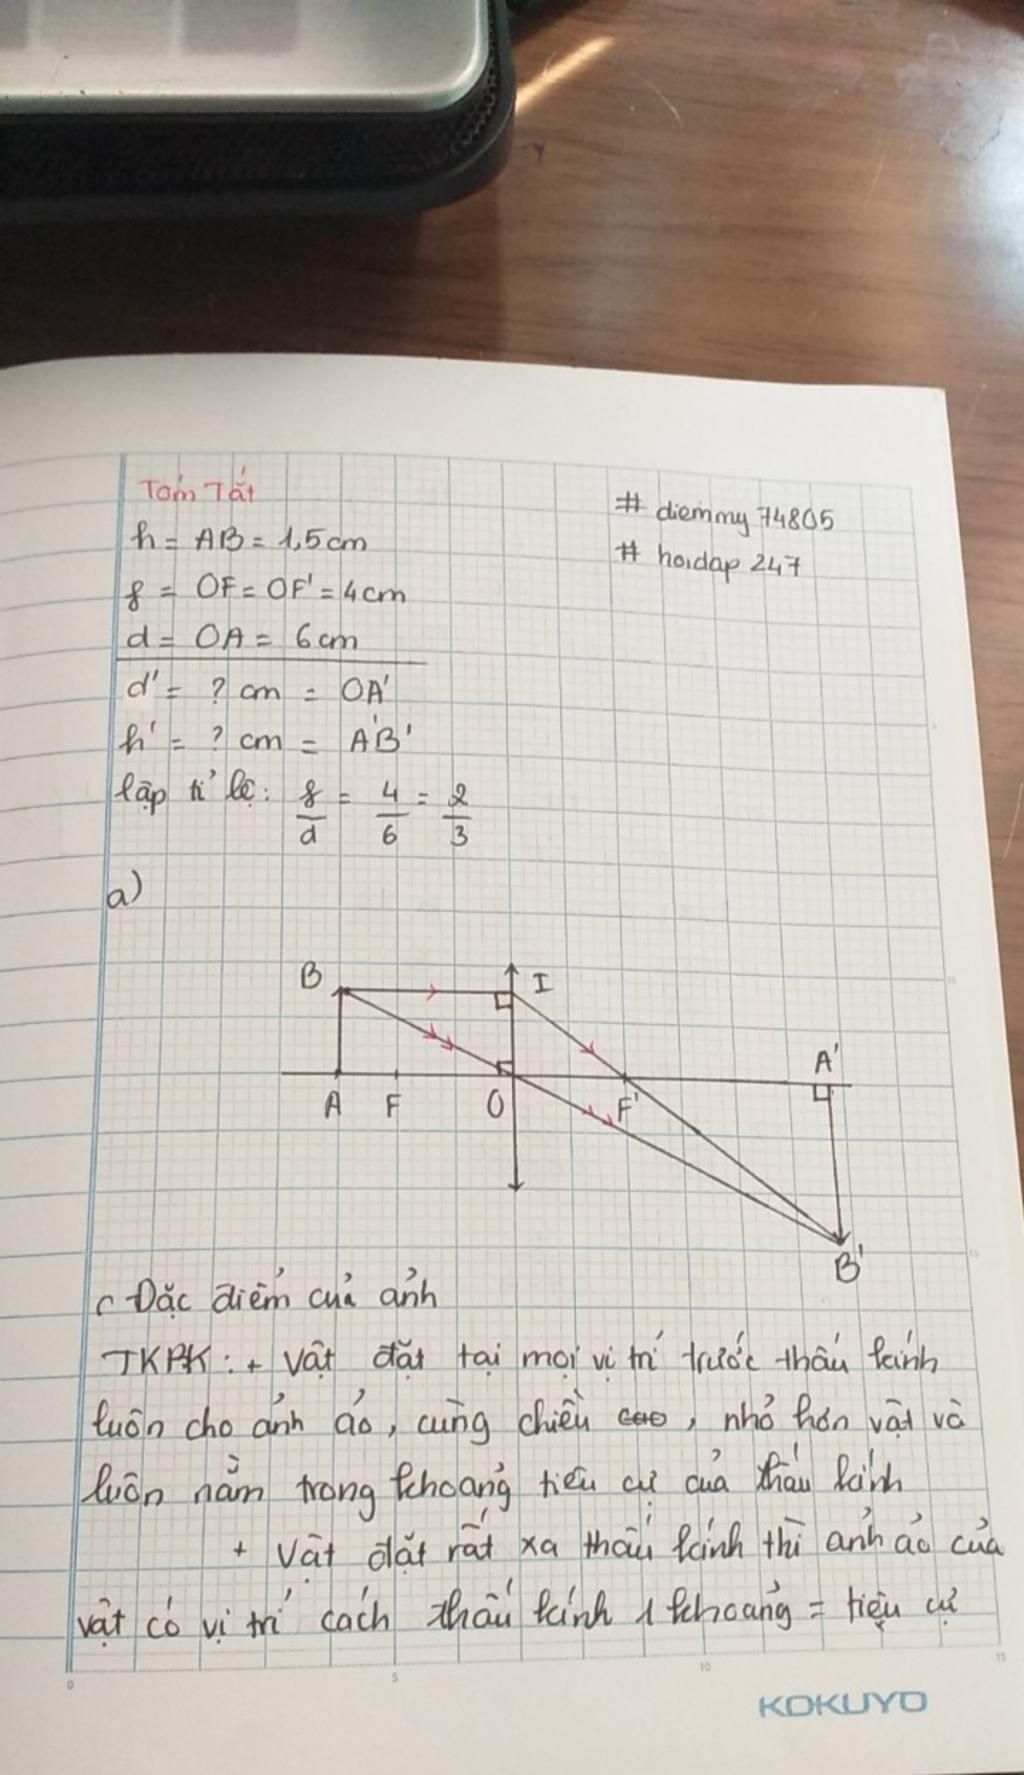 Tóm Tắt
# diemmy 74805
h = AB = 1,5 cm
# hoidap 247
f = OF = OF' = 4 cm
d = OA = 6 cm
d' = ? cm = OA'
h' = ? cm = A'B'
lập tỉ lệ: f/d = 4/6 = 2/3
a)
B I
A'
A F O F'
B'
Đặc điểm của ảnh
TKPK: + Vật đặt tại mọi vị trí trước thấu kính
luôn cho ảnh ảo, cùng chiều cao, nhỏ hơn vật và
luôn nằm trong khoảng tiêu cự của thấu kính
+ Vật đặt rất xa thấu kính thì ảnh ảo của
vật có vị trí cách thấu kính 1 khoảng = tiêu cự
0 5 10 15
KOKUYO